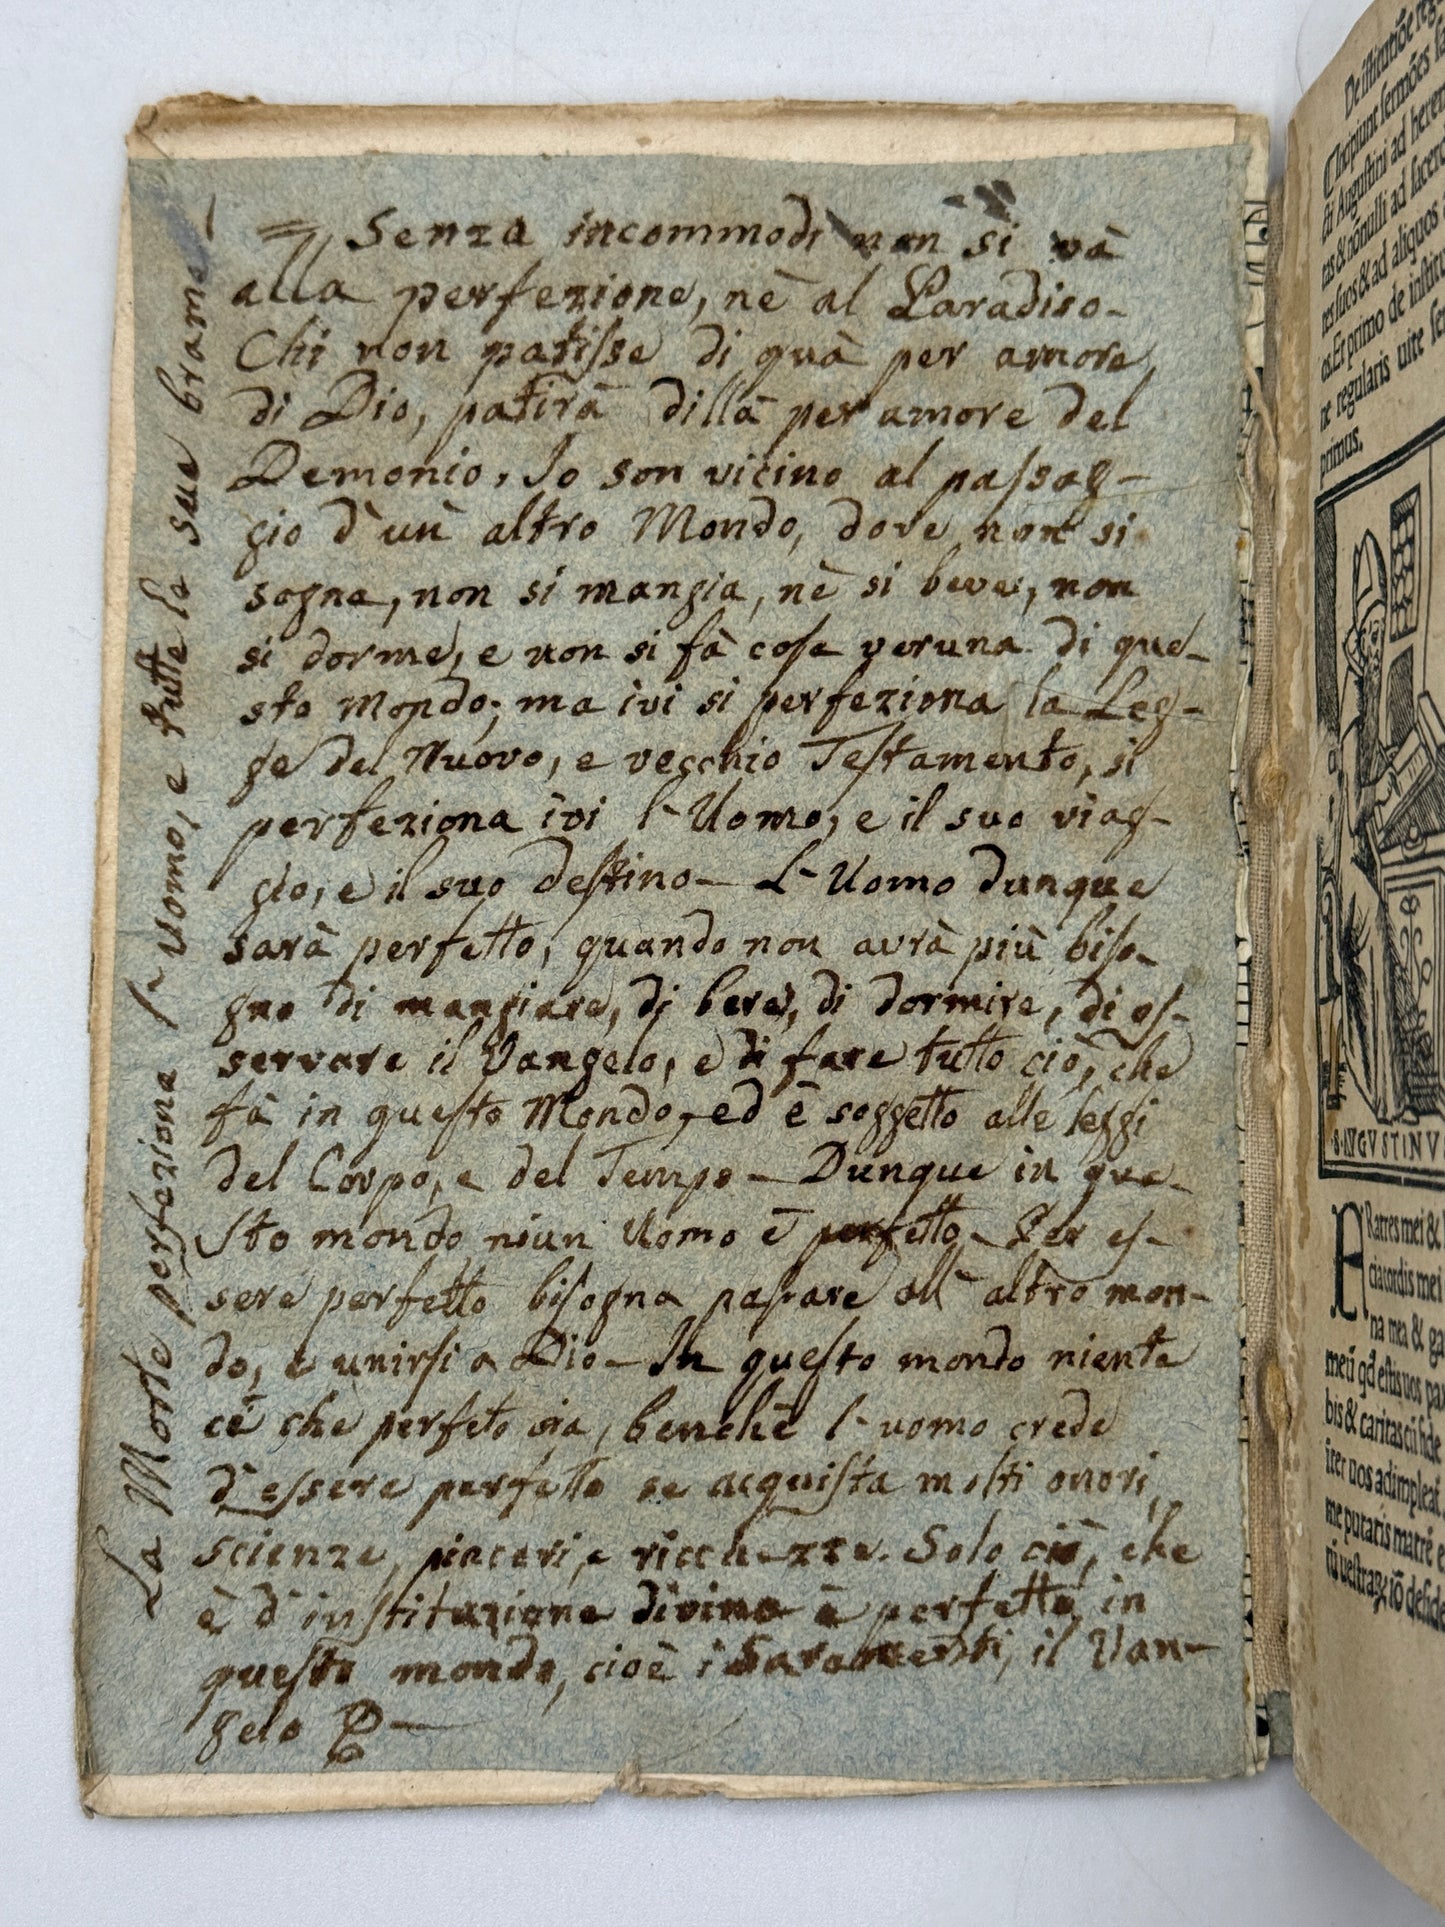 = Senza incommodi non si và
alla perfezione, nè al Paradiso-
Chi non patisse di quà per amore
di Dio, patirà dillà per amore del
Demonio. Io son vicino al passag-
gio d'un altro Mondo, dove non si
sogna, non si mangia, nè si beve, non
si dorme, e non si fà cosa veruna di que-
sto Mondo; ma ivi si perfeziona la Leg-
ge del Nuovo, e vecchio Testamento, si
perfeziona ivi l'Uomo, e il suo viag-
gio, e il suo destino- L'Uomo dunque
sarà perfetto, quando non avrà più biso-
gno di mangiare, di bere, di dormire, di os-
servare il Vangelo, e di fare tutto ciò, che
fà in questo Mondo, ed è soggetto alle leggi
del Corpo, e del Tempo- Dunque in que-
sto mondo niun Uomo è perfetto- Per es-
sere perfetto bisogna passare all'altro mon-
do, e unirsi a Dio- In questo mondo niente
cè che perfeto sia, benchè l'uomo crede
d'essere perfetto se acquista molti onori,
scienze, piaceri, e ricchezze. Solo ciò, che
è d'instituzione divina è perfetto in
questo mondo, cioè i Saramenti, il Van-
gelo
La Morte perfeziona l'uomo, e tutte le sue brame
De istitutiõe reg
Incipiunt sermões sa
cti Augustini ad herem
tas & nõnulli ad sacerd
tes suos & ad aliquos
os. Et primo de institu
ne regularis uite ser
primus.
S. AVGVSTINVS
FRatres mei &
cia cordis mei
na mea & ga
meũ qđ estis uos pa
bis & caritas cũ fide
irer nos adimpleat
me putatis matrẽ e